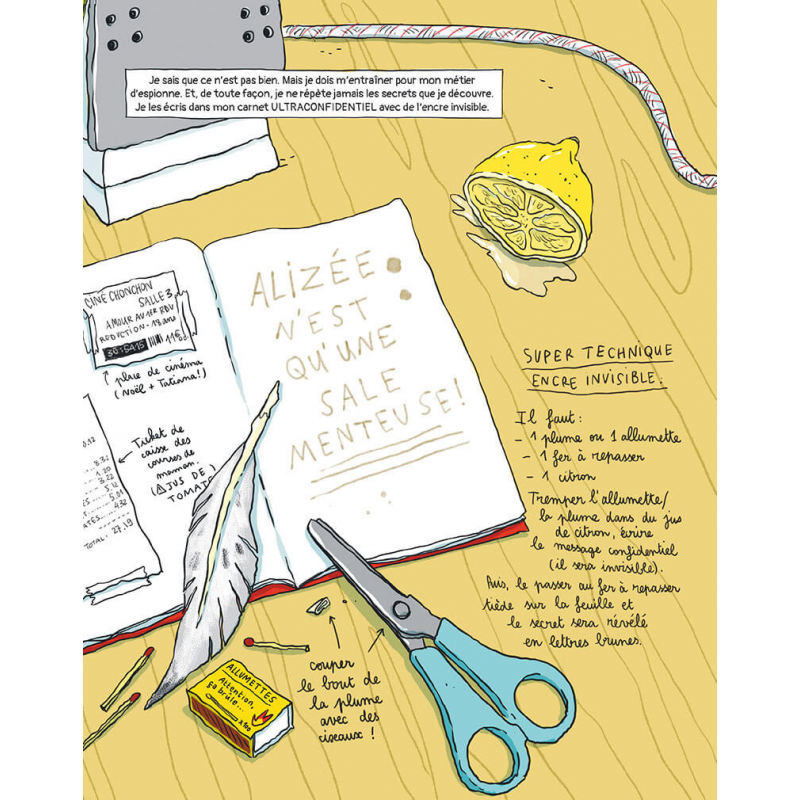 Je sais que ce n'est pas bien. Mais je dois m'entraîner pour mon métier
d'espionne. Et, de toute façon, je ne répète jamais les secrets que je découvre.
Je les écris dans mon carnet ULTRACONFIDENTIEL avec de l'encre invisible.
CINÉ CHONCHON
SALLE 3
AMOUR AU 1ER RDV
REDUCTION - 18 ans
11€
place de cinéma
(Noël + Tatiana!)
Ticket de
caisse des
courses de
maman.
(⚠JUS DE
TOMATE)
0.12
8.32
1.20
3.22
5.12
5.01
4.32
TOTAL: 27,19
ALIZÉE
N'EST
QU'UNE
SALE
MENTEUSE!
SUPER TECHNIQUE
ENCRE INVISIBLE.
Il faut:
- 1 plume ou 1 allumette
- 1 fer à repasser
- 1 citron
Tremper l'allumette/
la plume dans du jus
de citron, écrire
le message confidentiel
(il sera invisible).
Puis, le passer au fer à repasser
tiède sur la feuille et
le secret sera révélé
en lettres brunes.
couper
le bout de
la plume
avec des
ciseaux !
ALLUMETTES
Attention,
ça brûle...
x100